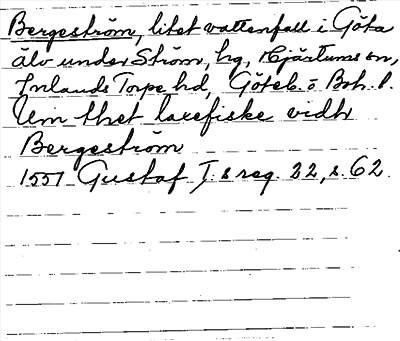 Bergeström, litet vattenfall i Göta
älv under Ström, hg, Hjärtums sn,
Inlands Torpe hd, Göteb. o. Boh. l.
Um thet laxefiske vidh
Bergeström
1551 Gustaf I:s reg. 22, s. 62.